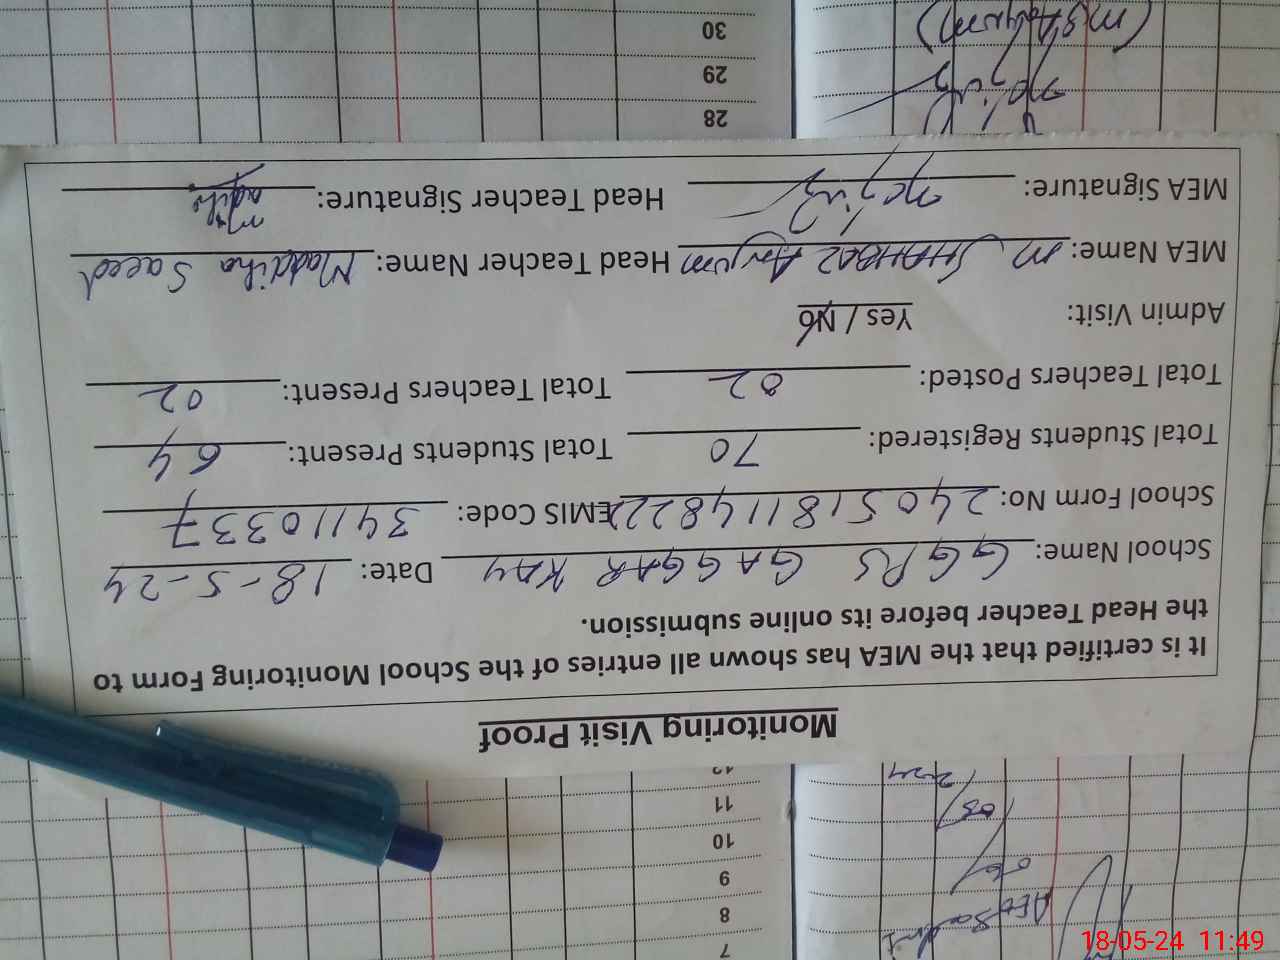 Monitoring Visit Proof
It is certified that the MEA has shown all entries of the School Monitoring Form to
the Head Teacher before its online submission.
School Name: GGPS GAGGAR KAY Date: 18-5-24
School Form No: 2405181148222 EMIS Code: 34110337
Total Students Registered: 70 Total Students Present: 64
Total Teachers Posted: 02 Total Teachers Present: 02
Admin Visit: Yes / No
MEA Name: M SHAHBAZ Anjum Head Teacher Name: Maddiha Saeed
MEA Signature: Head Teacher Signature:
7
8
9
10
11
12
28
29
30
18-05-24 11:49